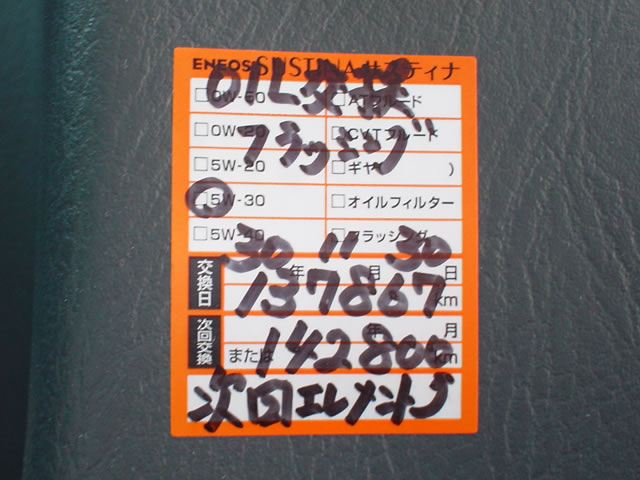 ENEOS SUSTINA サスティナ
OIL交換
フラッシング
□0W-50 □ATフルード
□0W-20 □CVTフルード
□5W-20 □ギヤ( )
□5W-30 □オイルフィルター
□5W-40 □フラッシング
交換日 30年 11月 30日
137867km
次回交換 年 月
または 142800km
次回エレメント